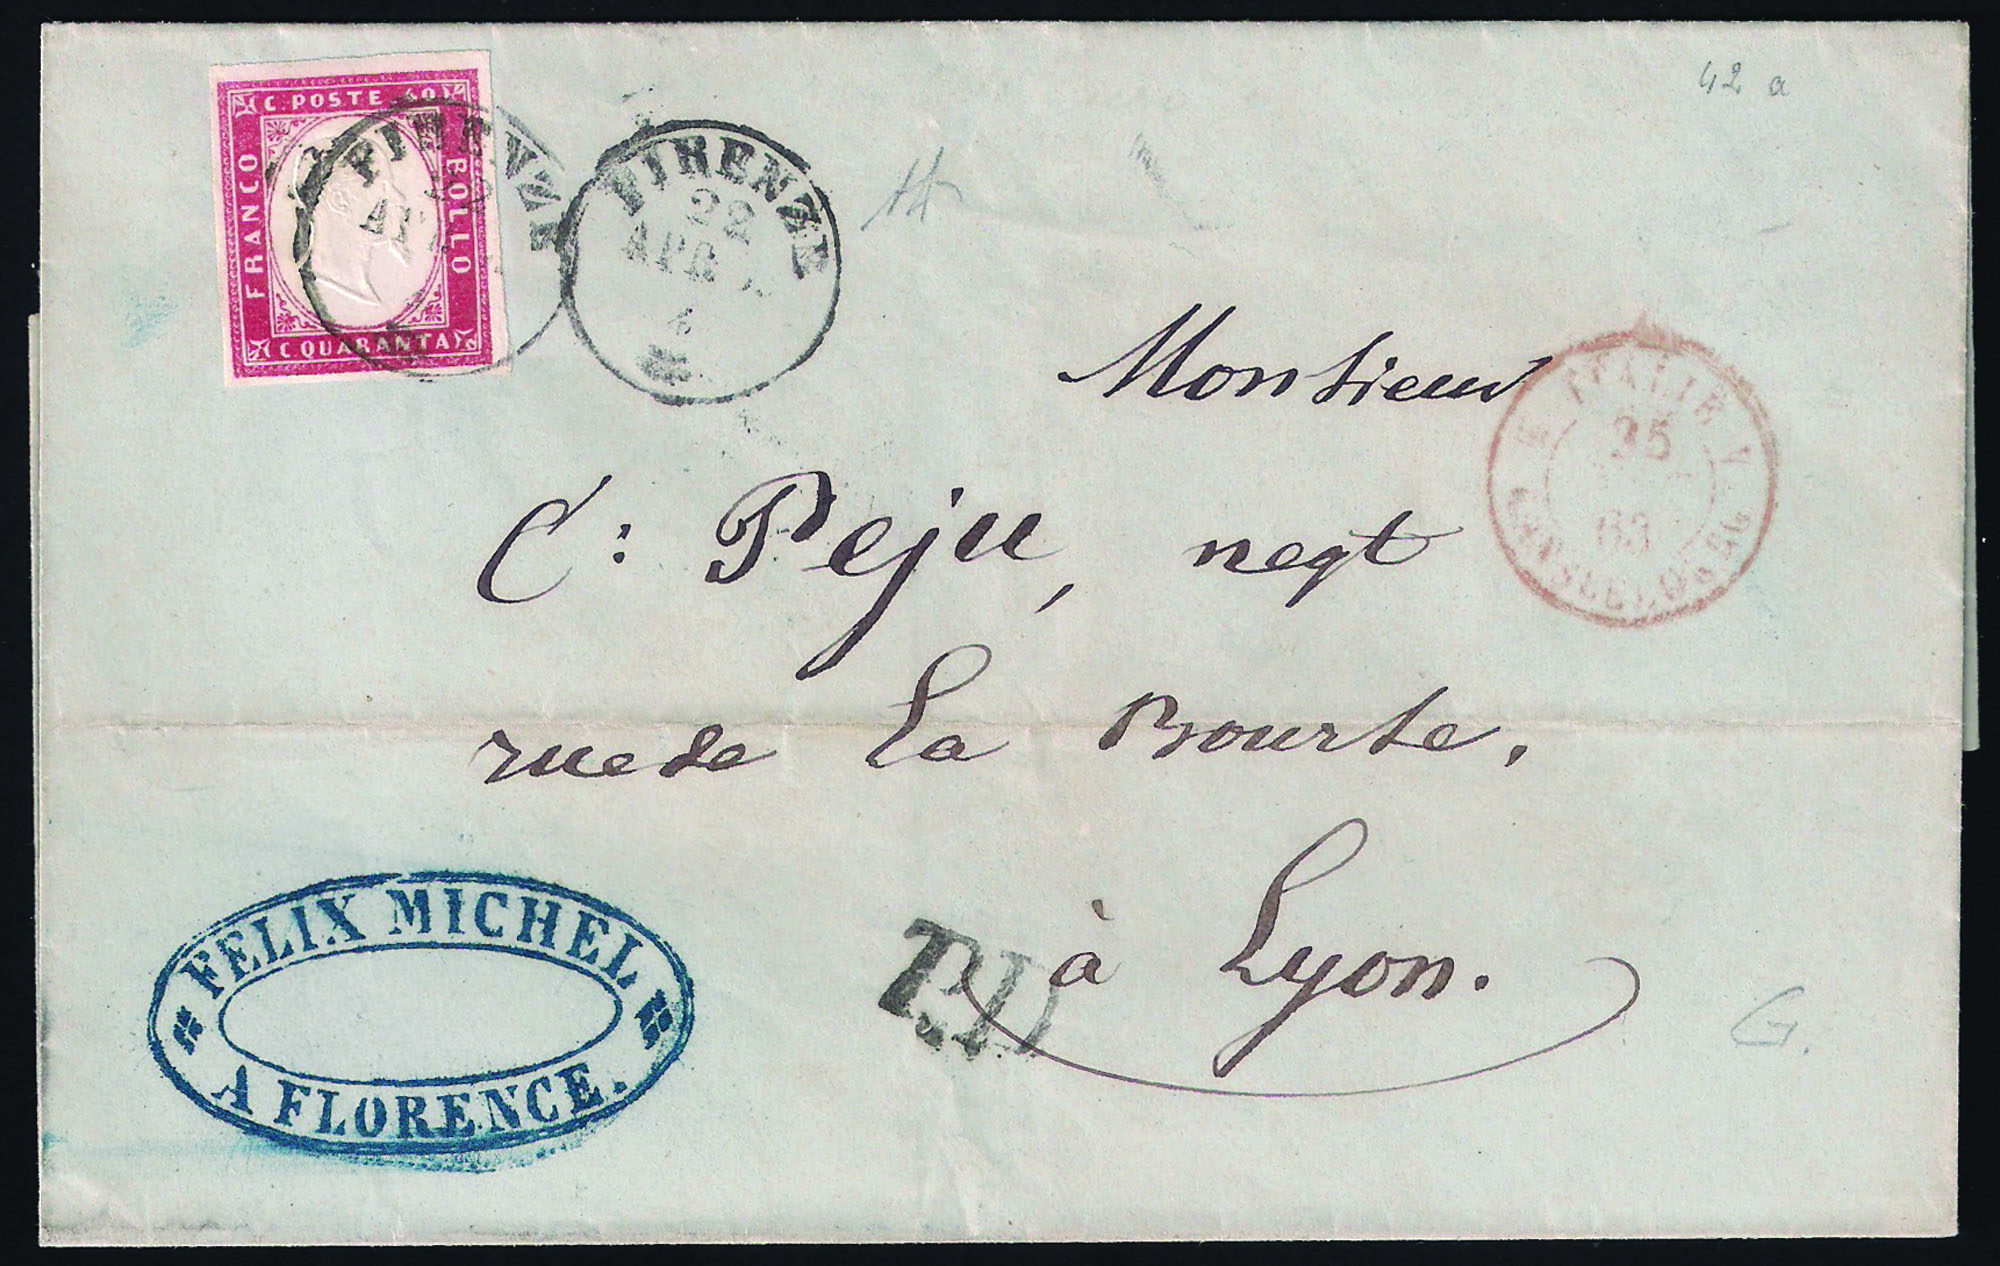 42 a
C. POSTE 40
FRANCO
BOLLO
C QUARANTA
FIRENZE
22
APR
FIRENZE
22
APR
ITALIE
25
63
Monsieur
C: Peju, negt
rue de la Bourse.
à Lyon.
P.D
FELIX MICHEL
A FLORENCE.
G.